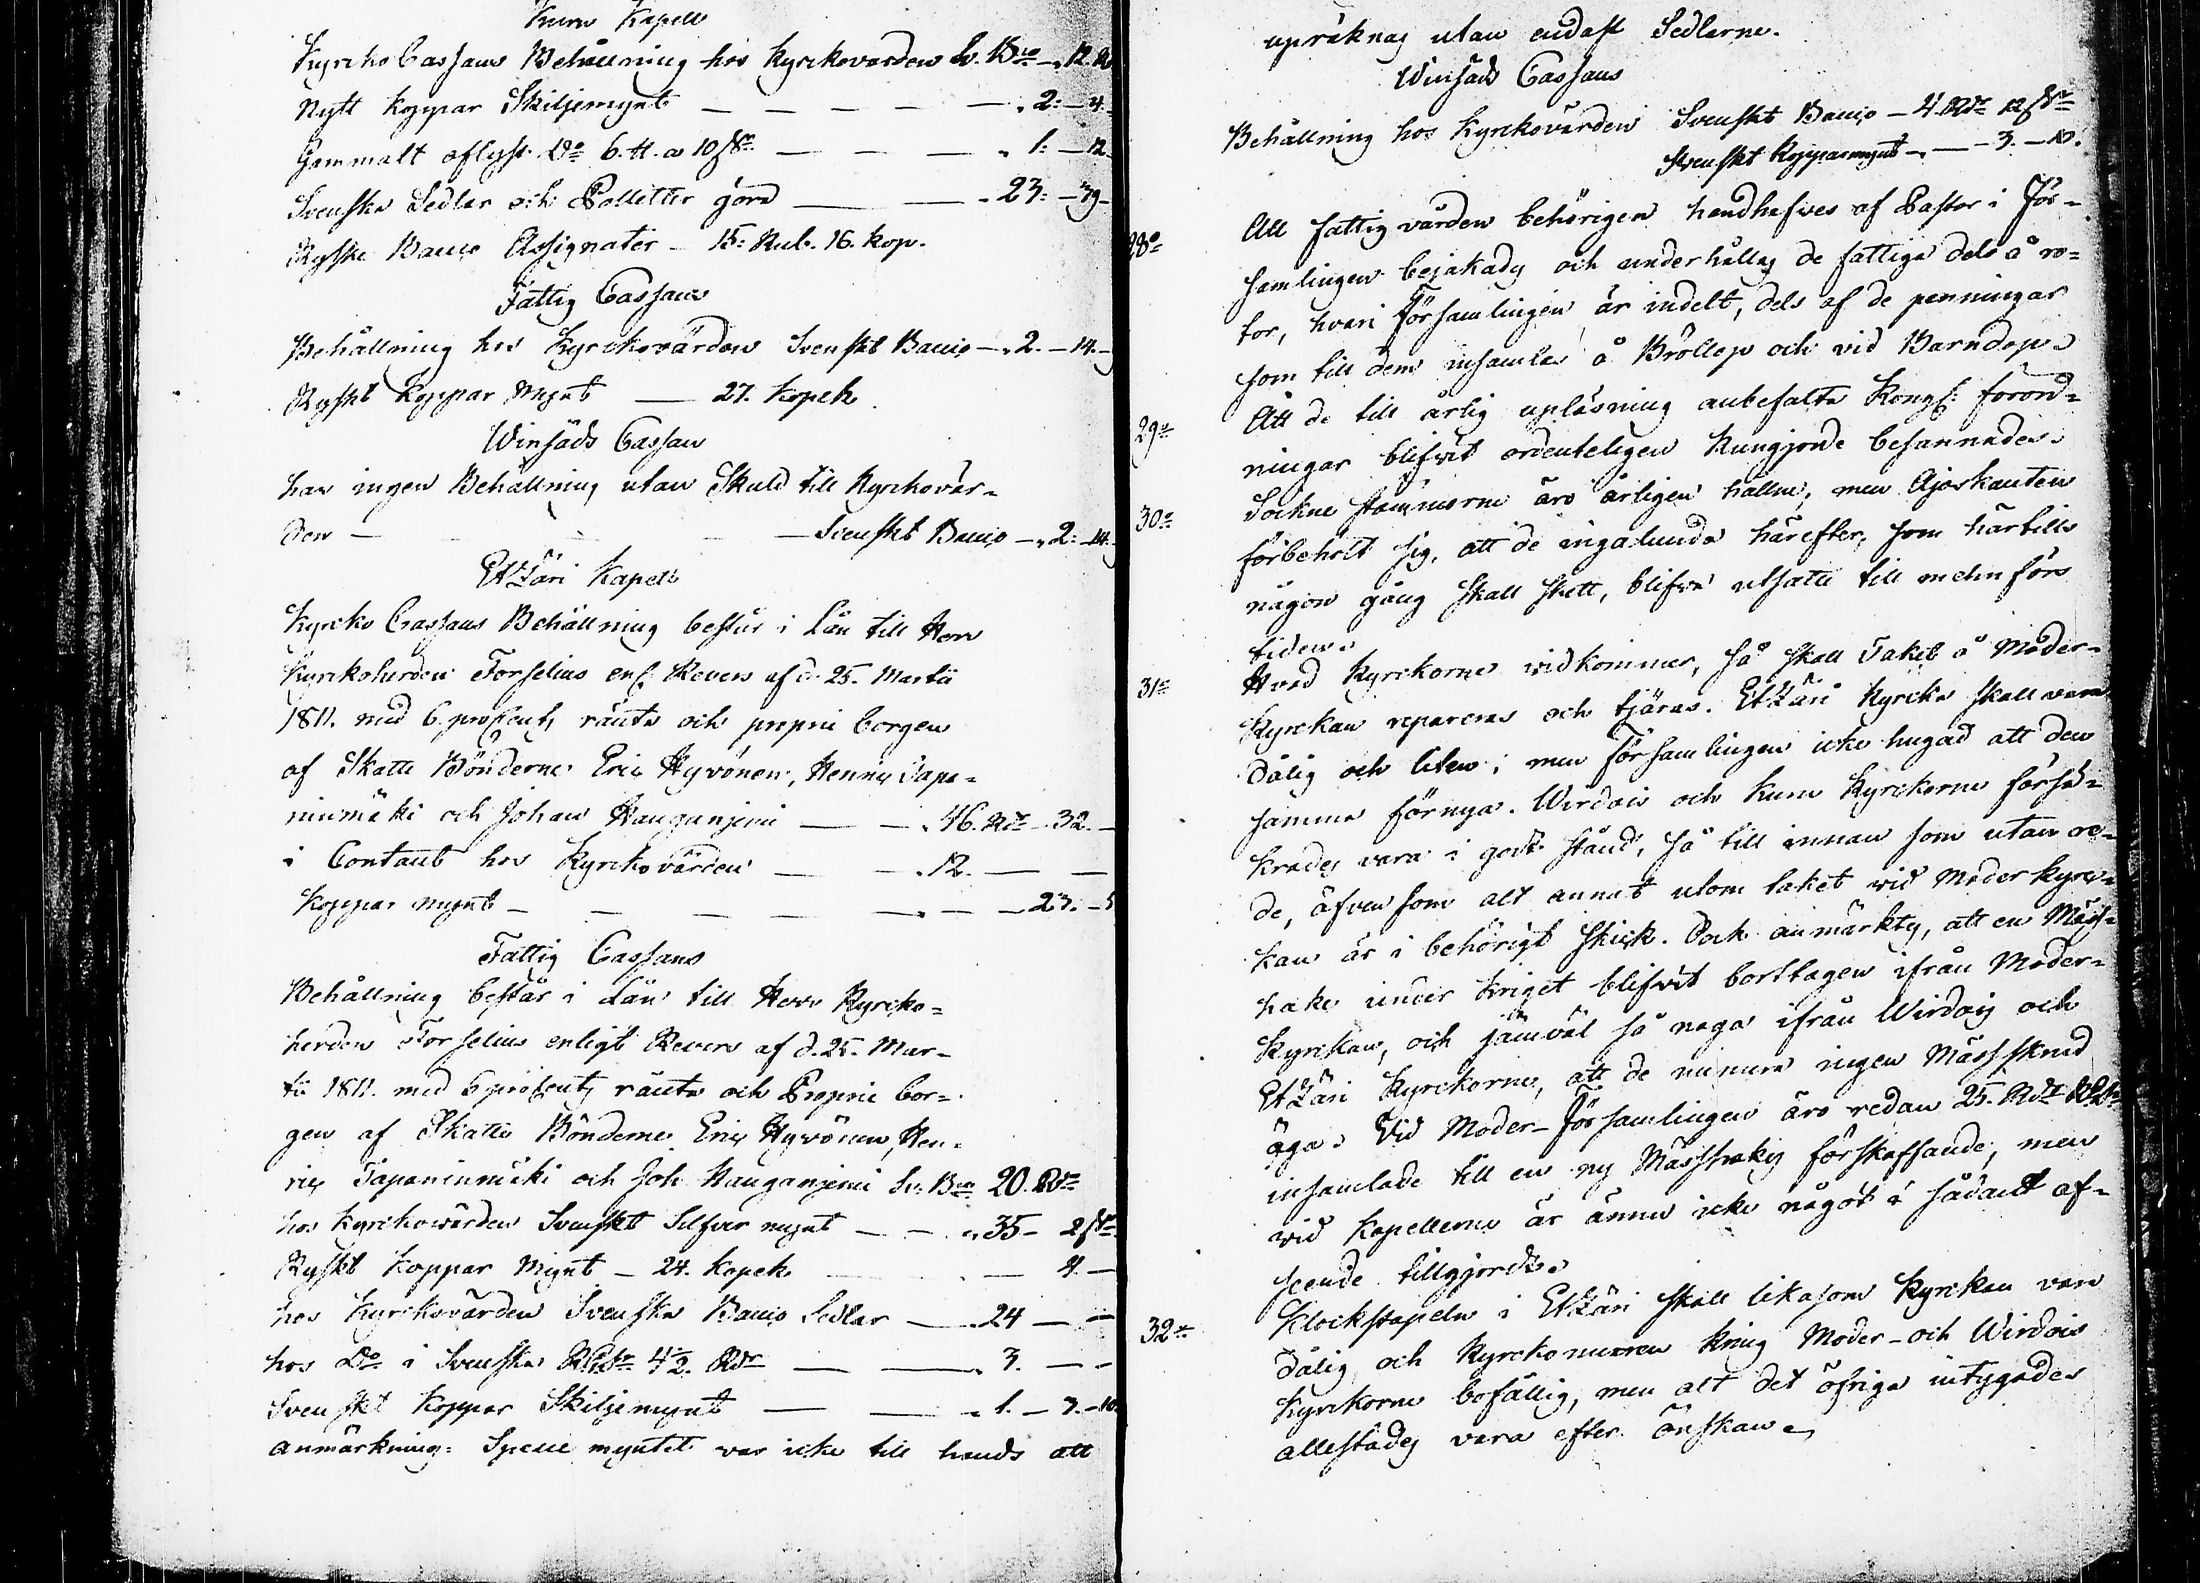 Kuru Kapell
Kyrcko Cassans Behållning hos Kyrckovärden Sv. Bco - 12. 12
Nytt Koppar Skiljemynt — — — — — 2: — 4.
Gammalt aflyst Do 6. ℔. a 10 ſk — — — — 1: — 12.
Svenska Sedlar och Polletter göra — — 23: — 39 —
Ryska Banco Assignater — 15: Rub. 16. kop.
Fattig Cassans
Behållning hos Kyrckovärden Svenskt Banco — 2. — 14. —
Ryskt Koppar Mynt — 27. Kopek
Winsäds Cassan
har ingen Behållning utan Skuld till Kyrckovär-
den — — — Svenskt Banco — 2: — 14.
Etzäri Kapell
Kyrcko Cassans Behållning består i Lån till Herr
Kyrckoherden Forselius enl. Revers af d. 25. Martii
1811. med 6. procents ränta och proprie borgen
af Skatte Bönderne Eric Hyvönen, Henric Tapa-
ninmäki och Johan Hauganjemi — — 46. Rdr — 32. —
i Contant hos Kyrckovärden — — 12. — —
Koppar mynt — — — — — 23. — 5
Fattig Cassans
Behållning består i Lån till Herr Kyrcko-
herden Forselius enligt Revers af d. 25. Mar-
tii 1811. med 6 procents ränta och Proprie bor-
gen af Skatte Bönderne Eric Hyvönen, Hen-
ric Tapaninmäki och Joh. Hauganjemi Sv. Bco 20. Rdr
hos Kyrckowärden Svenskt Silfver mynt — — 35 — 2 ſk
Ryskt Koppar Mynt — 24. Kopek — 4. —
hos Kyrckovärden Svenska Banco Sedlar — 24 — —
hos Do i Svenska RGds 4½. Rdr — — 3. — —
Svenskt Koppar Skiljemynt — — 1. — 7. — 10.
Anmärkning: Specie myntet var icke till hands att
upräknas utan endast Sedlarne.
Winsäds Cassans
Behållning hos Kyrckovärden Svenskt Banco — 4. Rdr 12 ſk
Svenskt Kopparmynt — — 3. — 10.
28o Att fattigvården behörigen handhafves af Pastor i För-
samlingen bejakades och underhålles de fattiga dels å ro-
tor, hvari Församlingen är indelt, dels af de penningar
som till dem insamlas å Bröllop och vid Barndop.
29o Att de till årlig upläsning anbefalte Kongl: förord-
ningar blifvit ordenteligen kungjorde besannades.
30o Sockne stämmorne äro årligen hållne, men Ajoskanten
förbehölt sig, att de ingalunda härefter, som härtills
någon gång skall skett, blifva utsatte till mehnförs
tiden.
31o Hvad Kyrckorne widkommer, så skall Taket å Moder-
Kyrckan repareras och tjäras. Etzäri Kyrcka skall vara
dålig och liten; men Församlingen icke hugad att den
samma förnya. Wirdois och Kuru Kyrckorne försä-
krades vara i godt stånd, så till innan som utan re-
de, äfven som alt annat utom taket wid Moder kyrc-
kan är i behörigt skick. Dock anmärktes, att en Mäss-
hake under kriget blifvit borttagen ifrån Moder-
Kyrckan, och jämväl så noga ifrån Wirdois och
Etzäri Kyrckorne, att de numera ingen Mässskrud
äga. Vid Moder-Församlingen äro redan 25. Rdr RGds
insamlade till en ny Mässhakes förskaffande, men
wid Kapellerne är ännu icke något i sådant af-
seende tillgjordt.
32o Klockstapeln i Etzäri skall likasom Kyrckan vara
dålig och Kyrckomuren kring Moder- och Wirdois
Kyrckorne bofällig, men alt det öfriga intygades
allestädes vara efter önskan.